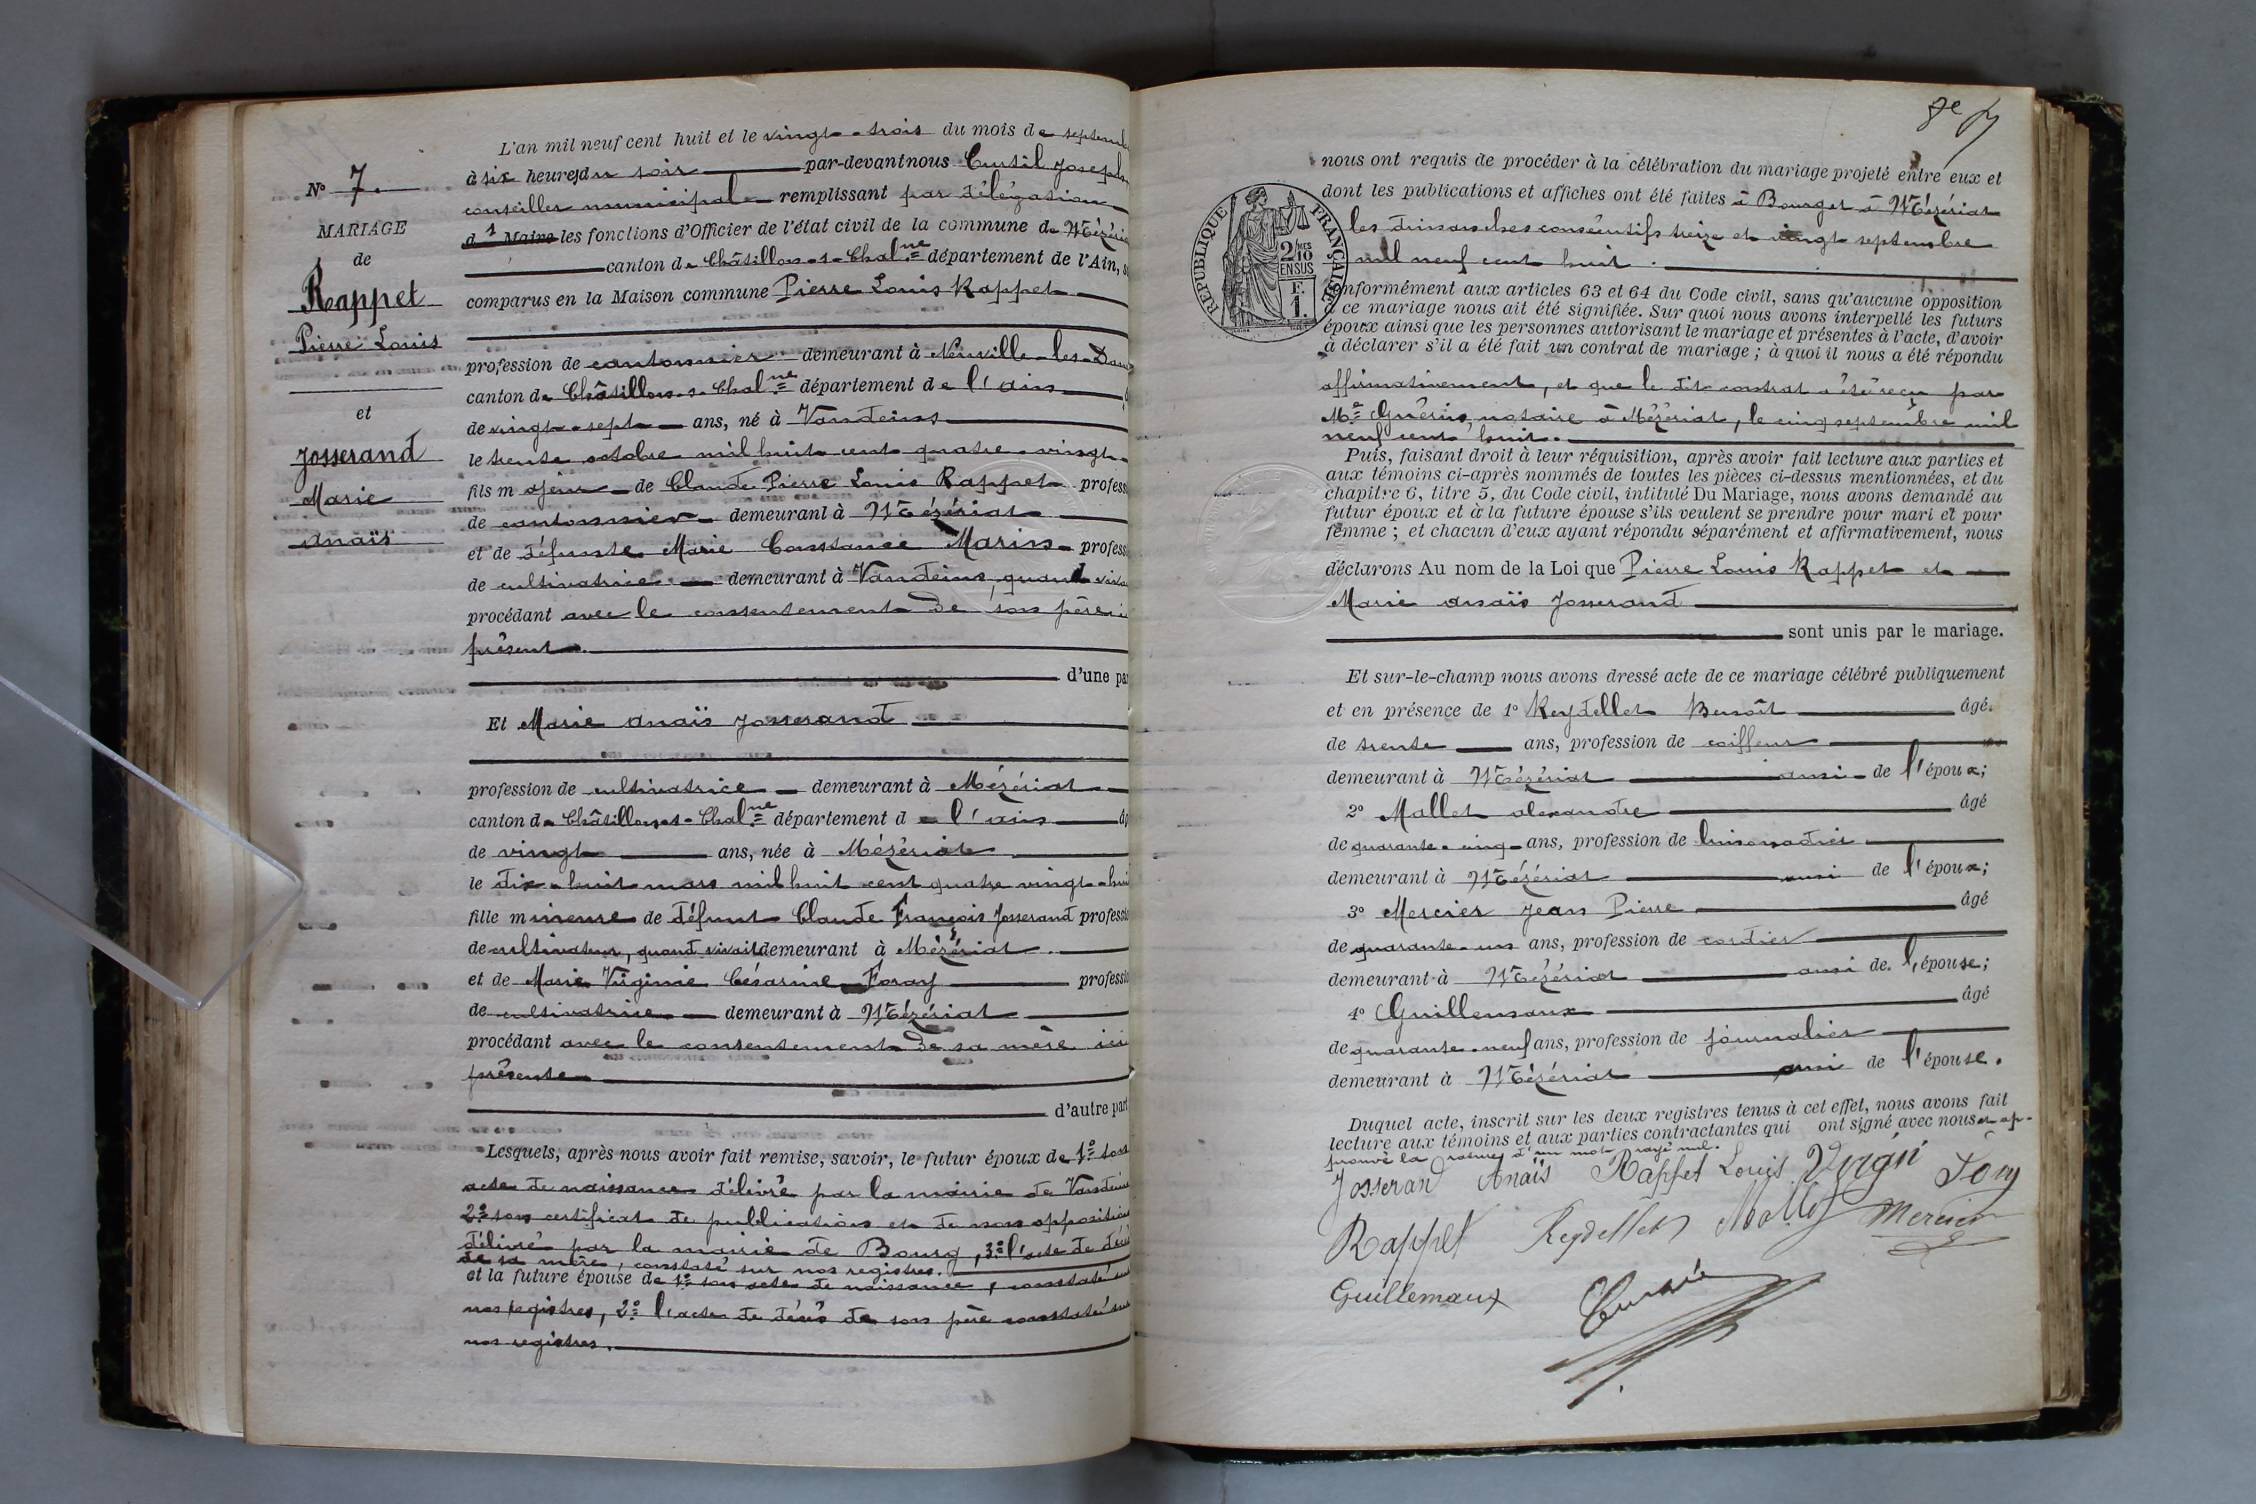 L'an mil neuf cent huit et le vingt-trois du mois de septemb
à six heures du soir par-devant nous Curtil Joseph
conseiller municipal remplissant par délégation
d 1 Maire les fonctions d'Officier de l'état civil de la commune de Mézéria
canton de Châtillon-s-Chalne département de l'Ain, s
comparus en la Maison commune Pierre Louis Rappet
N° 7.
MARIAGE
de
Rappet
Pierre Louis
et
Josserand
Marie
Anaïs
profession de cantonnier demeurant à Neuville-les-Dam
canton de Châtillon-s-Chalne département de l'Ain
de vingt-sept ans, né à Vandeins
le trente octobre mil huit cent quatre-vingt
fils majeur de Claude Pierre Louis Rappet profess
de cantonnier demeurant à Mézériat
et de défunte Marie Constance Marin profess
de cultivatrice demeurant à Vandeins, quand viva
procédant avec le consentement de son père ici
présent.
d'une par
Et Marie Anaïs Josserand
profession de cultivatrice demeurant à Mézériat
canton de Châtillon-s-Chalne département de l'Ain âg
de vingt ans, née à Mézériat
le dix-huit mars mil huit cent quatre vingt-hui
fille mineure de défunt Claude François Josserand professio
de cultivateur, quand vivait demeurant à Mézériat.
et de Marie Virginie Césarine Foray professio
de cultivatrice demeurant à Mézériat
procédant avec le consentement de sa mère ici
présente
d'autre part
Lesquels, après nous avoir fait remise, savoir, le futur époux de 1° son
acte de naissance délivré par la mairie de Vandeins
2° son certificat de publications et de non opposition
délivré par la mairie de Bourg, 3° l'acte de décè
de sa mère, constaté sur nos registres.
et la future épouse de 1° son acte de naissance, constaté sur
nos registres, 2° l'acte de décès de son père constaté sur
nos registres.
nous ont requis de procéder à la célébration du mariage projeté entre eux et
dont les publications et affiches ont été faites à Bourg et à Mézériat
les dimanches consécutifs treize et vingt septembre
mil neuf cent huit.
RÉPUBLIQUE FRANÇAISE
2/10 MES
EN SUS
F.
1.
onformément aux articles 63 et 64 du Code civil, sans qu'aucune opposition
à ce mariage nous ait été signifiée. Sur quoi nous avons interpellé les futurs
époux ainsi que les personnes autorisant le mariage et présentes à l'acte, d'avoir
à déclarer s'il a été fait un contrat de mariage ; à quoi il nous a été répondu
affirmativement, et que le dit contrat a été reçu par
Me Guérin, notaire à Mézériat, le cinq septembre mil
neuf cent huit.
Puis, faisant droit à leur réquisition, après avoir fait lecture aux parties et
aux témoins ci-après nommés de toutes les pièces ci-dessus mentionnées, et du
chapitre 6, titre 5, du Code civil, intitulé Du Mariage, nous avons demandé au
futur époux et à la future épouse s'ils veulent se prendre pour mari et pour
femme ; et chacun d'eux ayant répondu séparément et affirmativement, nous
déclarons Au nom de la Loi que Pierre Louis Rappet et
Marie Anaïs Josserand
sont unis par le mariage.
Et sur-le-champ nous avons dressé acte de ce mariage célébré publiquement
et en présence de 1° Reydellet Benoît âgé.
de trente ans, profession de coiffeur
demeurant à Mézériat ami de l'époux;
2° Mallet Alexandre âgé
de quarante-cinq ans, profession de limonadier
demeurant à Mézériat ami de l'époux;
3° Mercier Jean Pierre âgé
de quarante-un ans, profession de cordier
demeurant à Mézériat ami de l'épouse;
4° Guillemaux âgé
de quarante-neuf ans, profession de journalier
demeurant à Mézériat ami de l'épouse.
Duquel acte, inscrit sur les deux registres tenus à cet effet, nous avons fait
lecture aux témoins et aux parties contractantes qui ont signé avec nous et ap-
prouvé la rature d'un mot rayé nul.
Josserand Anaïs Rappet Louis
Rappet Reydellet Mallet Mercier
Guillemaux